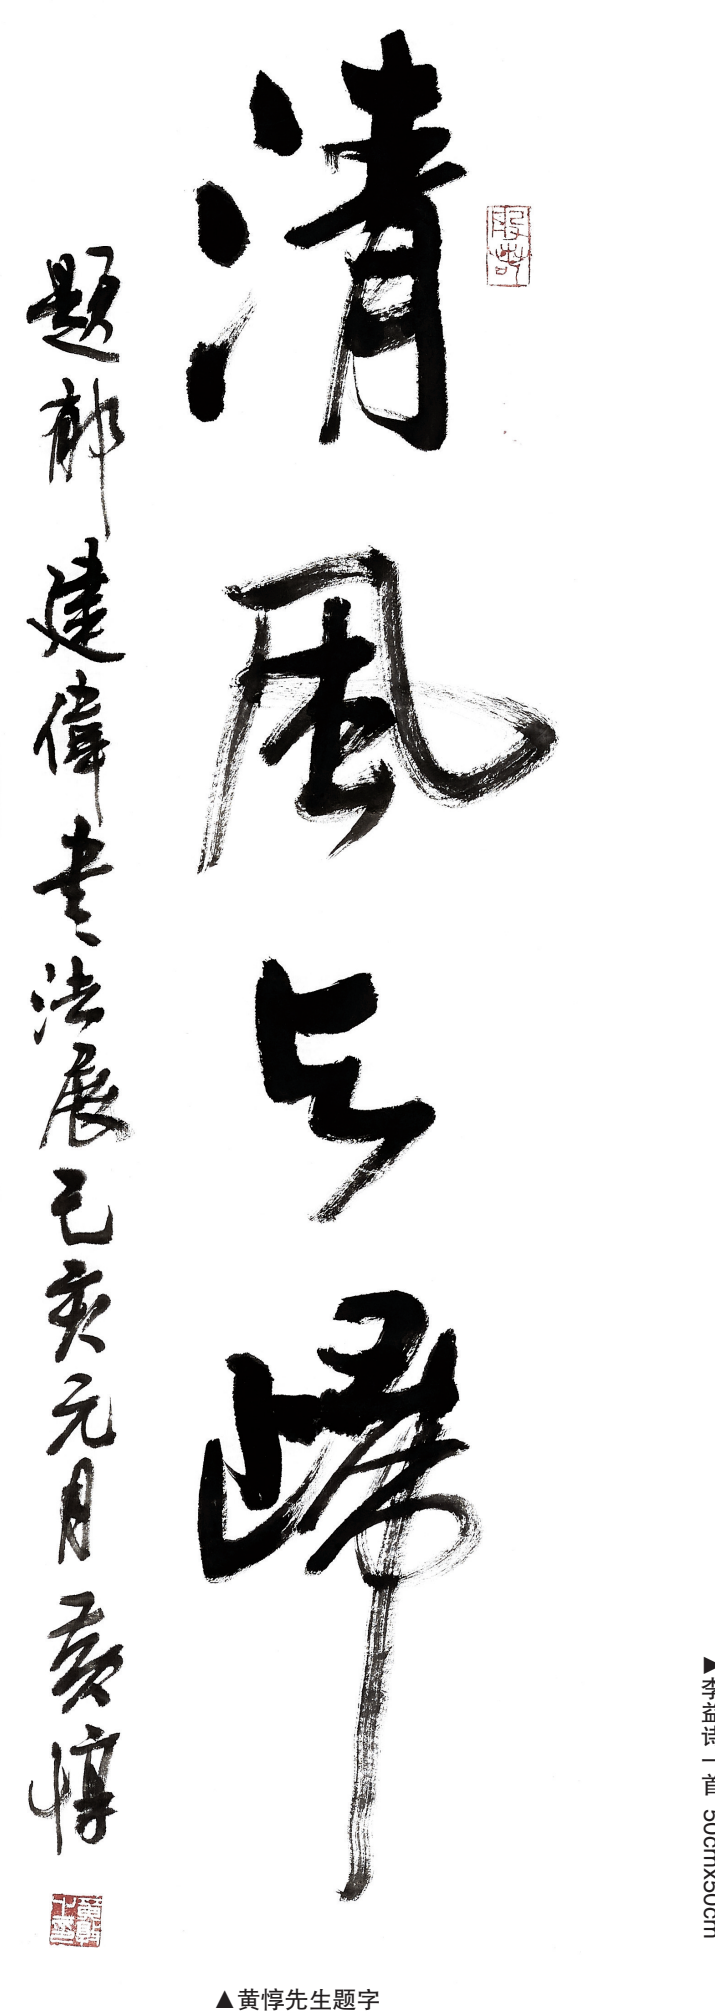 清風与歸
題郁建偉書法展己亥元月黃惇
▲黄惇先生题字
▶李益诗一首 50cmx50cm